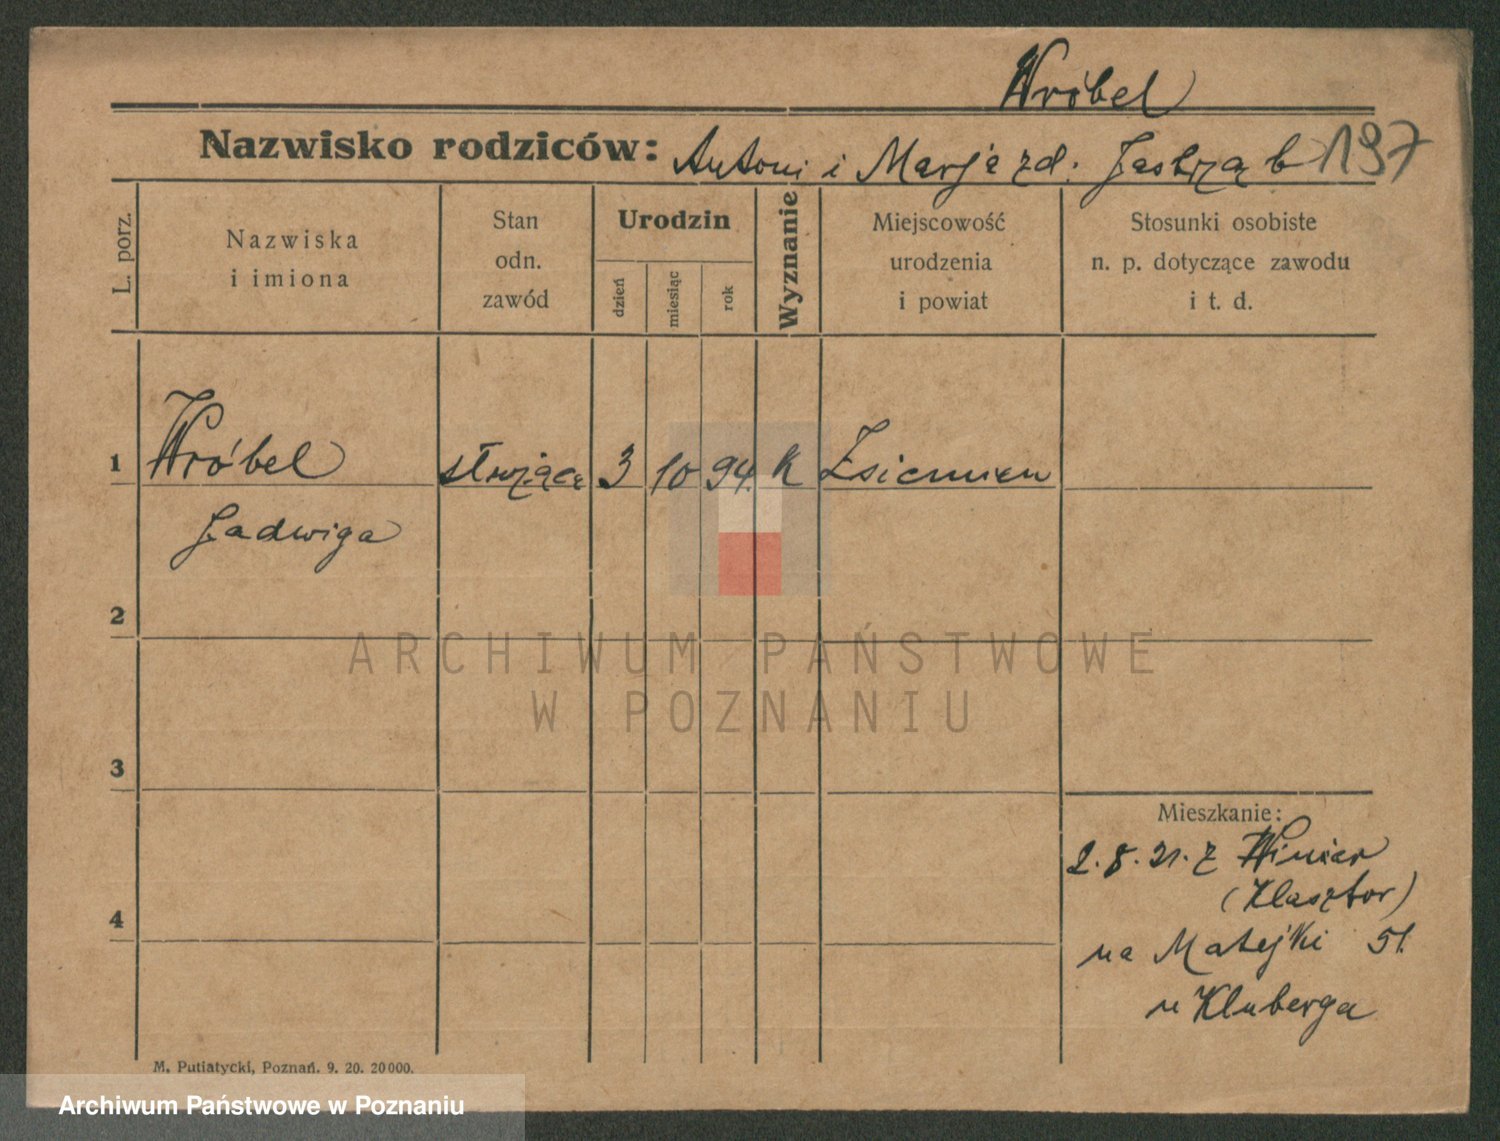 Wróbel
Nazwisko rodziców: Antoni i Marja zd. Jastrząb 197
L. porz.
Nazwiska
i imiona
Stan
odn.
zawód
Urodzin
dzień
miesiąc
rok
Wyznanie
Miejscowość
urodzenia
i powiat
Stosunki osobiste
n. p. dotyczące zawodu
i t. d.
1 Wróbel służąca 3 10 94. K
Jadwiga
2
3
4
Mieszkanie:
2.8.21. z Winiar
(Klasztor)
na Matejki 51.
u Kluberga
M. Putiatycki, Poznań. 9. 20. 20000.
ARCHIWUM PAŃSTWOWE
W POZNANIU
Archiwum Państwowe w Poznaniu